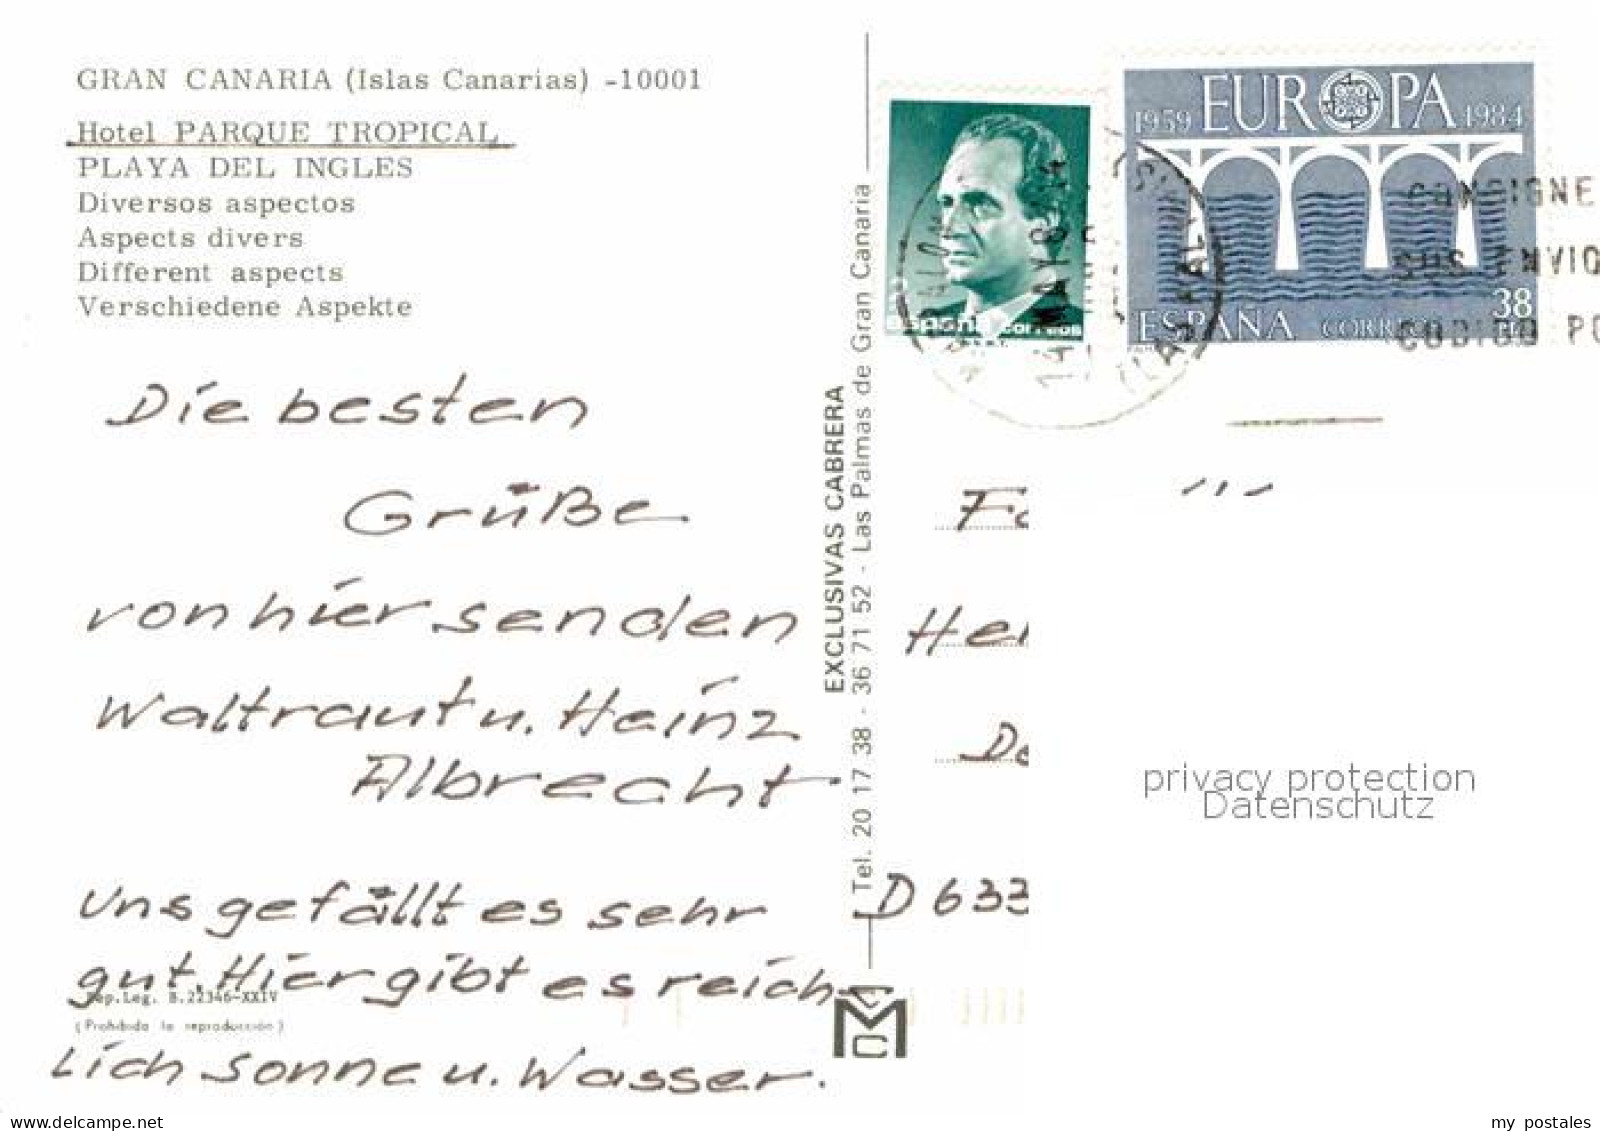 GRAN CANARIA (Islas Canarias) -10001
Hotel PARQUE TROPICAL
PLAYA DEL INGLES
Diversos aspectos
Aspects divers
Different aspects
Verschiedene Aspekte
Die besten
Grüße
von hier senden
Waltraut u. Heinz
Albrecht
Uns gefällt es sehr
gut. Hier gibt es reich-
lich Sonne u. Wasser.
Dep. Leg. B. 22346-XXIV
(Prohibida la reproducción)
EXCLUSIVAS CABRERA
Tel. 20 17 38 - 36 71 52 - Las Palmas de Gran Canaria
MC
España correos
1959 EUROPA 1984
ESPAÑA CORREOS 38
CONSIGNE
SUS ENVIO
CODIGO PO
D 633
privacy protection
Datenschutz
my postales
www.delcampe.net